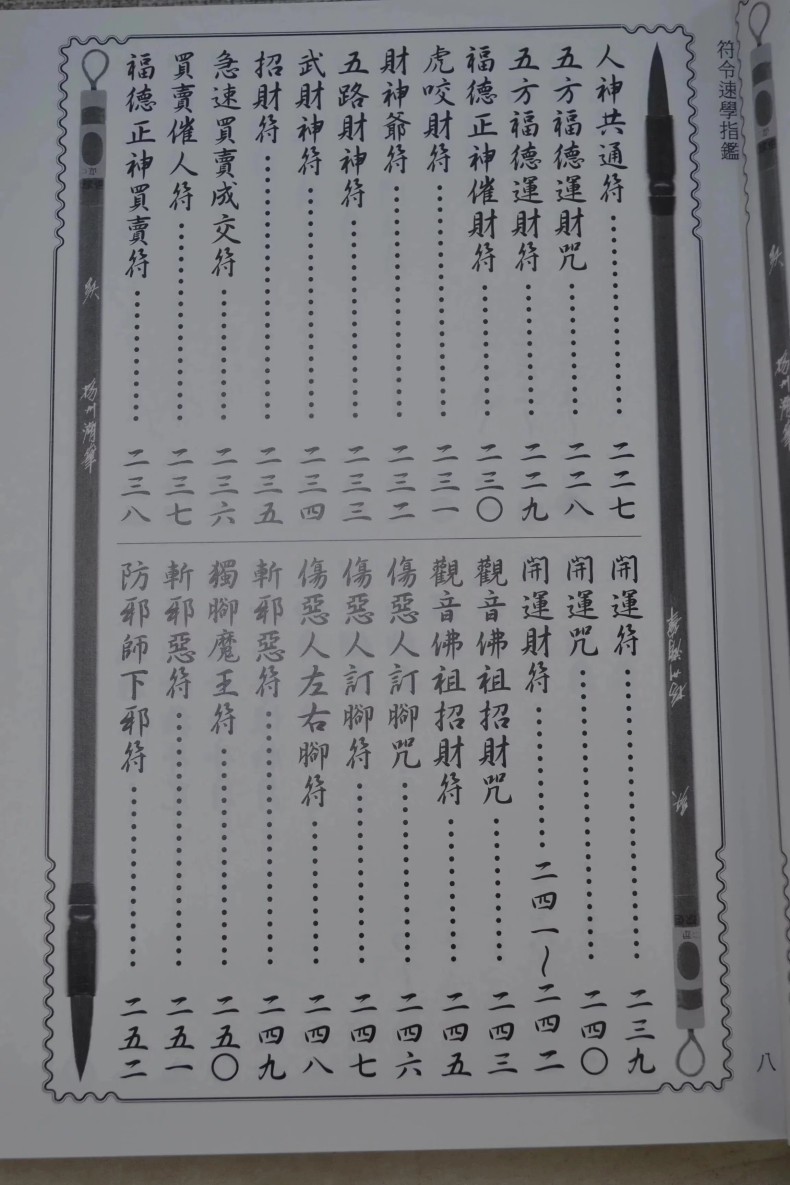 符令速學指鑑
人神共通符……二二七
五方福德運財咒……二二八
五方福德運財符……二二九
福德正神催財符……二三〇
虎咬財符……二三一
財神爺符……二三二
五路財神符……二三三
武財神符……二三四
招財符……二三五
急速買賣成交符……二三六
買賣催人符……二三七
福德正神買賣符……二三八
開運符……二三九
開運咒……二四〇
開運財符……二四一~二四二
觀音佛祖招財咒……二四三
觀音佛祖招財符……二四五
傷惡人訂腳咒……二四六
傷惡人訂腳符……二四七
傷惡人左右腳符……二四八
斬邪惡符……二四九
獨腳魔王符……二五〇
斬邪惡符……二五一
防邪師下邪符……二五二
八